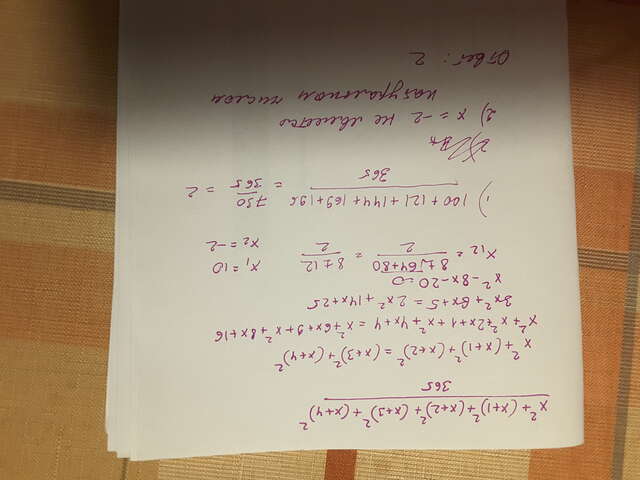 x² + (x+1)² + (x+2)² + (x+3)² + (x+4)²
365
x² + (x+1)² + (x+2)² = (x+3)² + (x+4)²
x² + x² + 2x + 1 + x² + 4x + 4 = x² + 6x + 9 + x² + 8x + 16
3x² + 6x + 5 = 2x² + 14x + 25
x² - 8x - 20 = 0
x₁₂ = (8 ± √(64+80))/2 = (8 ± 12)/2 x₁ = 10
x₂ = -2
1) (100 + 121 + 144 + 169 + 196)/365 = 730/365 = 2
2)
2) x = -2 не является
натуральном числом
Ответ: 2